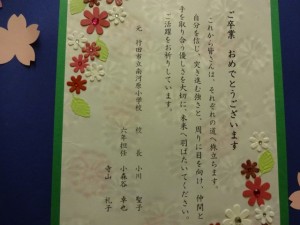 ご卒業 おめでとうございます
これから皆さんは、それぞれの道へ旅立ちます。
自分を信じ、突き進む強さと、周りに目を向け、仲間と
手を取り合う優しさを大切に、未来へ羽ばたいてください。
ご活躍をお祈りしています。
元 行田市立南河原小学校 校長 小川 聖子
六年担任 小森谷 幸也
寺山 礼子